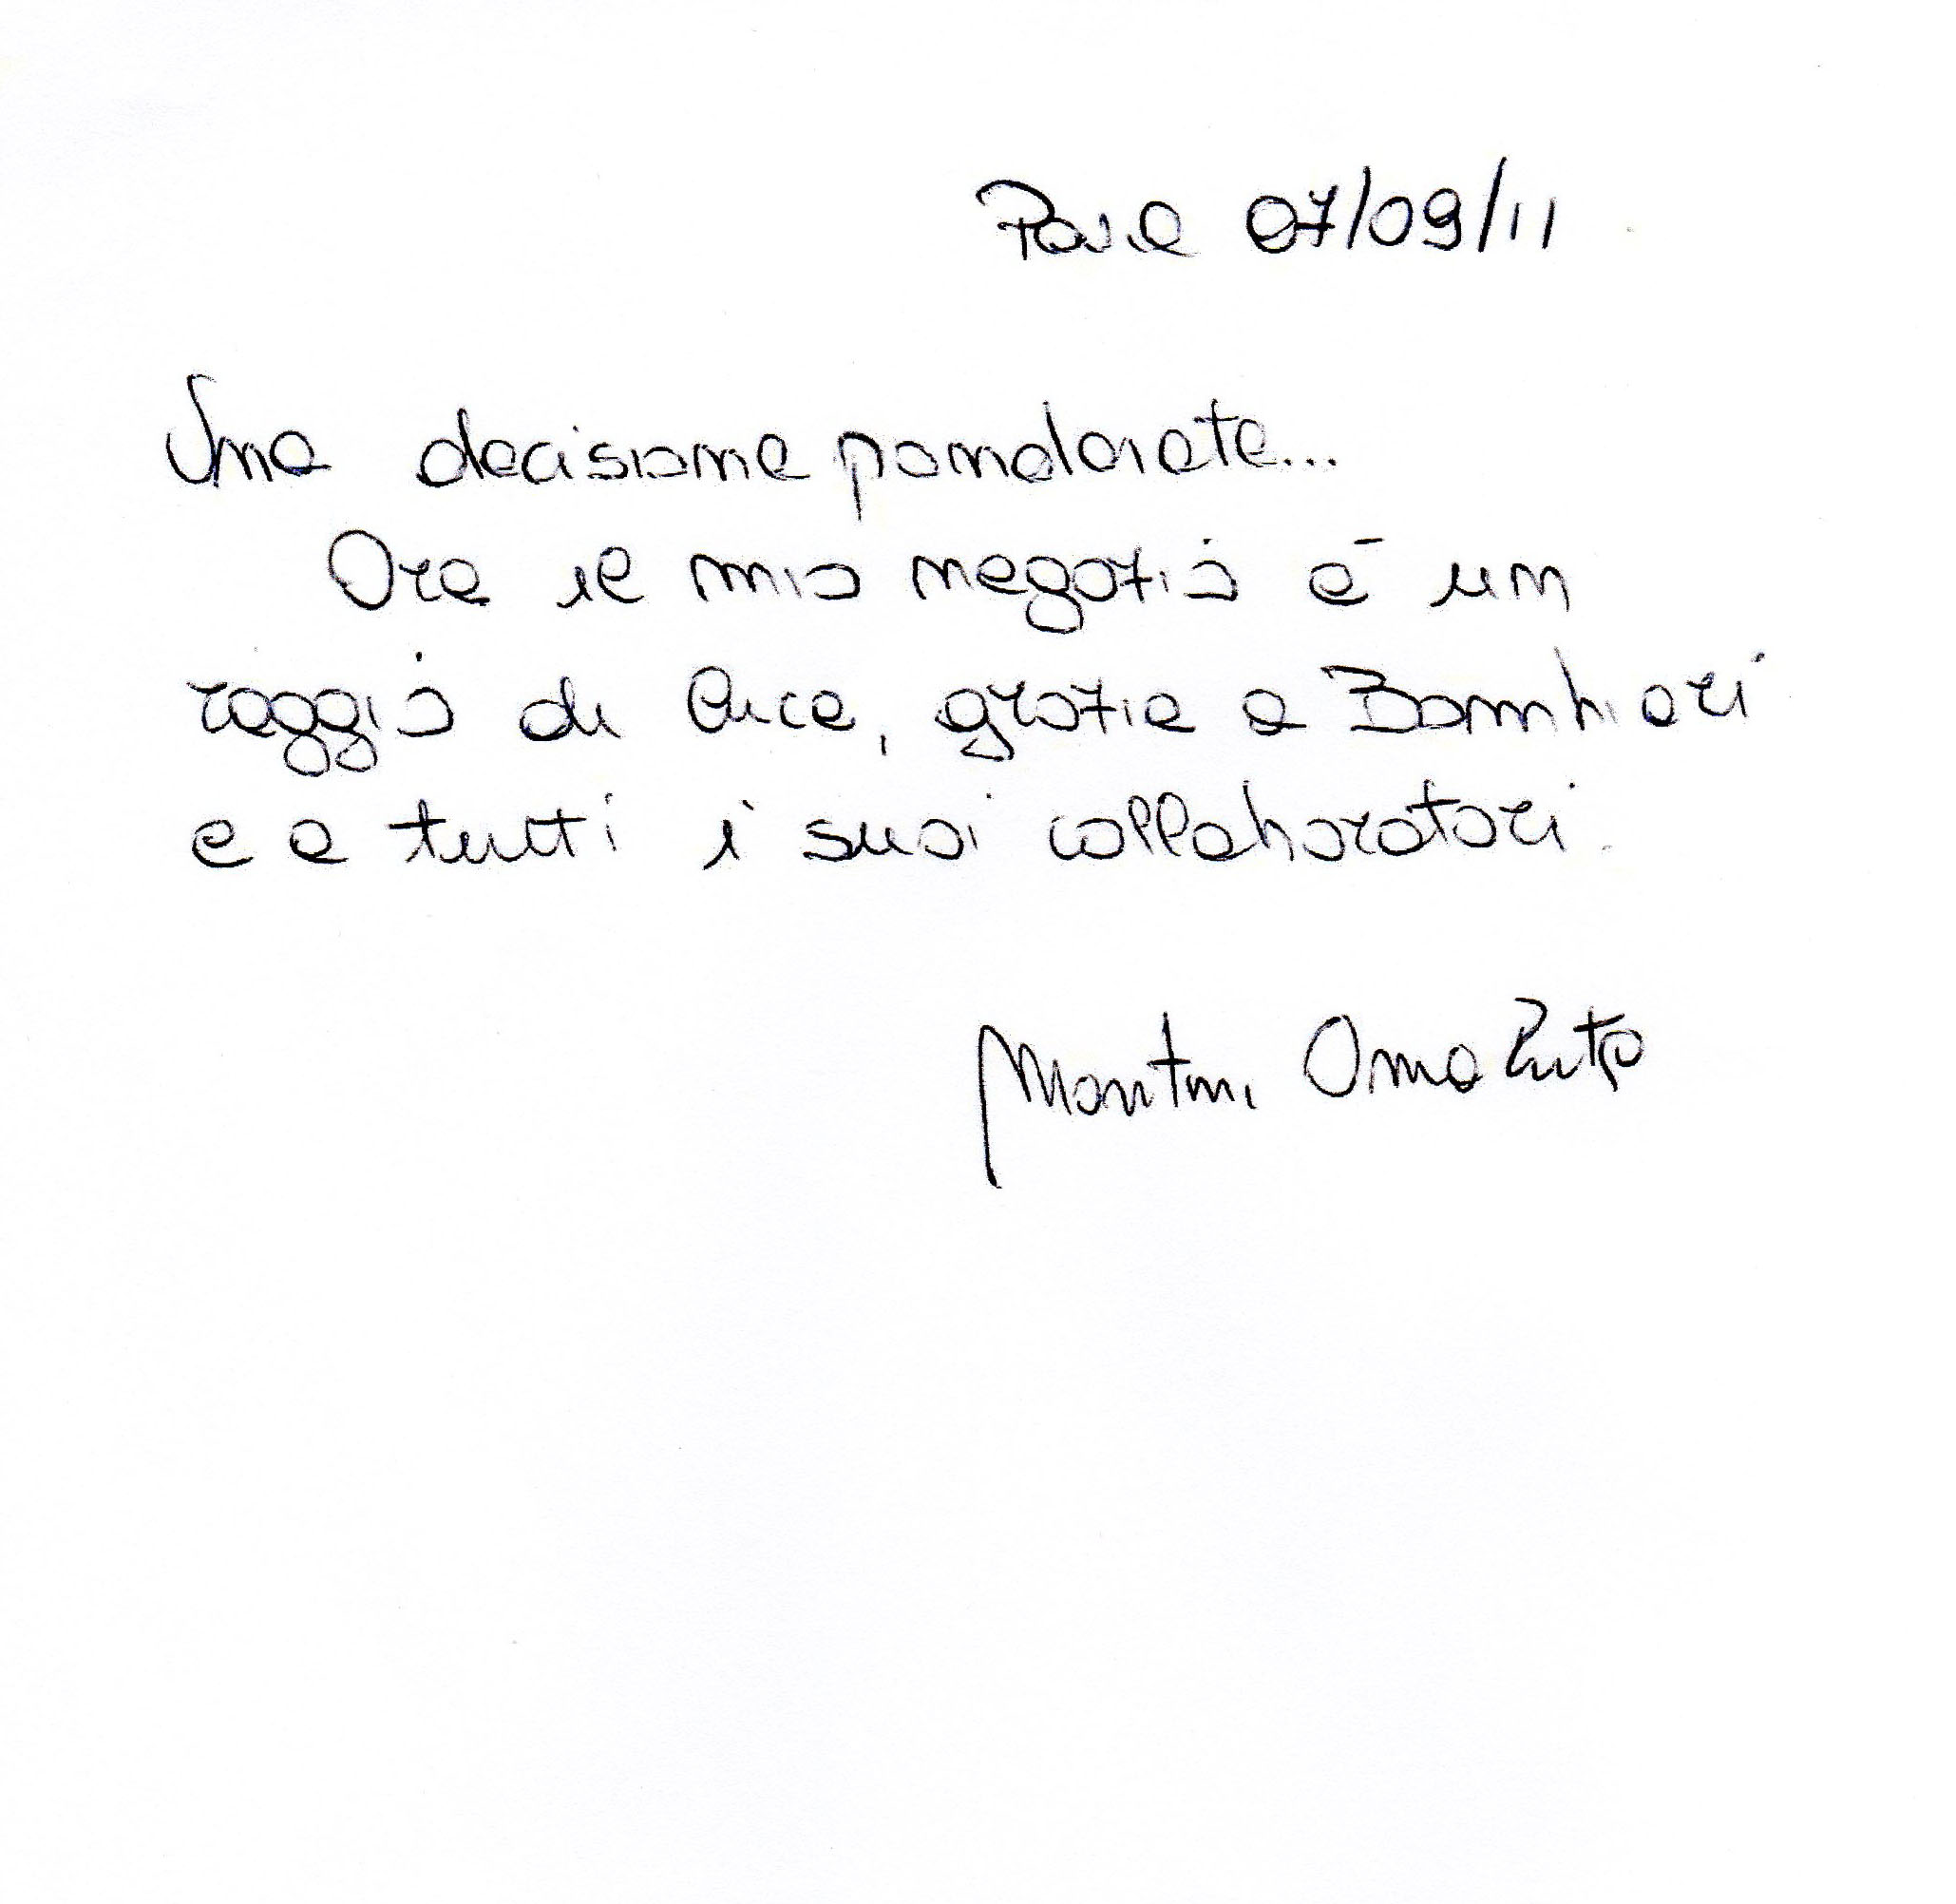 Pavia 07/09/11
Una decisione ponderata...
Ora il mio negozio è un
raggio di luce, grazie a Bombieri
e a tutti i suoi collaboratori.